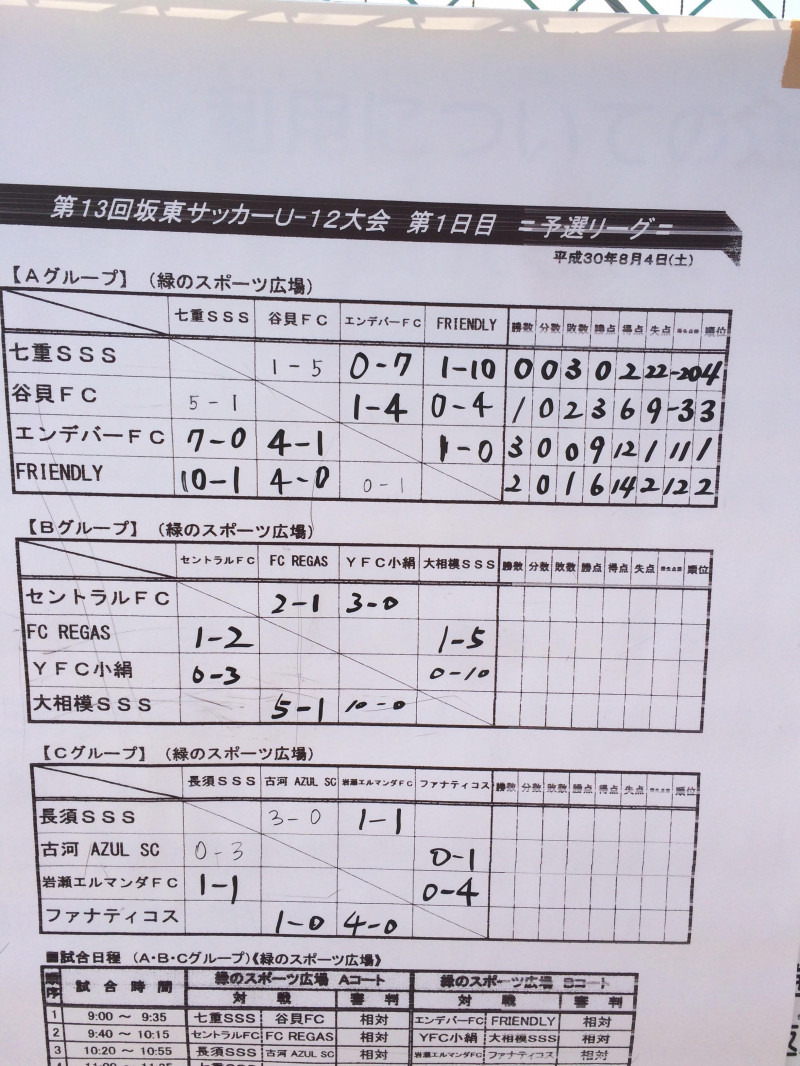 第13回坂東サッカーU-12大会 第1日目 =予選リーグ=
平成30年8月4日(土)
【Aグループ】 (緑のスポーツ広場)
七重SSS 谷貝FC エンデバーFC FRIENDLY 勝数 分数 敗数 勝点 得点 失点 得失点差 順位
七重SSS 1-5 0-7 1-10 0 0 3 0 2 22 -20 4
谷貝FC 5-1 1-4 0-4 1 0 2 3 6 9 -3 3
エンデバーFC 7-0 4-1 1-0 3 0 0 9 12 1 11 1
FRIENDLY 10-1 4-0 0-1 2 0 1 6 14 2 12 2
【Bグループ】 (緑のスポーツ広場)
セントラルFC FC REGAS YFC小絹 大相模SSS 勝数 分数 敗数 勝点 得点 失点 得失点差 順位
セントラルFC 2-1 3-0
FC REGAS 1-2 1-5
YFC小絹 0-3 0-10
大相模SSS 5-1 10-0
【Cグループ】 (緑のスポーツ広場)
長須SSS 古河 AZUL SC 岩瀬エルマンダFC ファナティコス 勝数 分数 敗数 勝点 得点 失点 順位
長須SSS 3-0 1-1
古河 AZUL SC 0-3 0-1
岩瀬エルマンダFC 1-1 0-4
ファナティコス 1-0 4-0
■試合日程 (A・B・Cグループ)《緑のスポーツ広場》
順序 試合時間 緑のスポーツ広場 Aコート 緑のスポーツ広場 Bコート
対戦 審判 対戦 審判
1 9:00 ～ 9:35 七重SSS 谷貝FC 相対 エンデバーFC FRIENDLY 相対
2 9:40 ～ 10:15 セントラルFC FC REGAS 相対 YFC小絹 大相模SSS 相対
3 10:20 ～ 10:55 長須SSS 古河 AZUL SC 相対 岩瀬エルマンダFC ファナティコス 相対